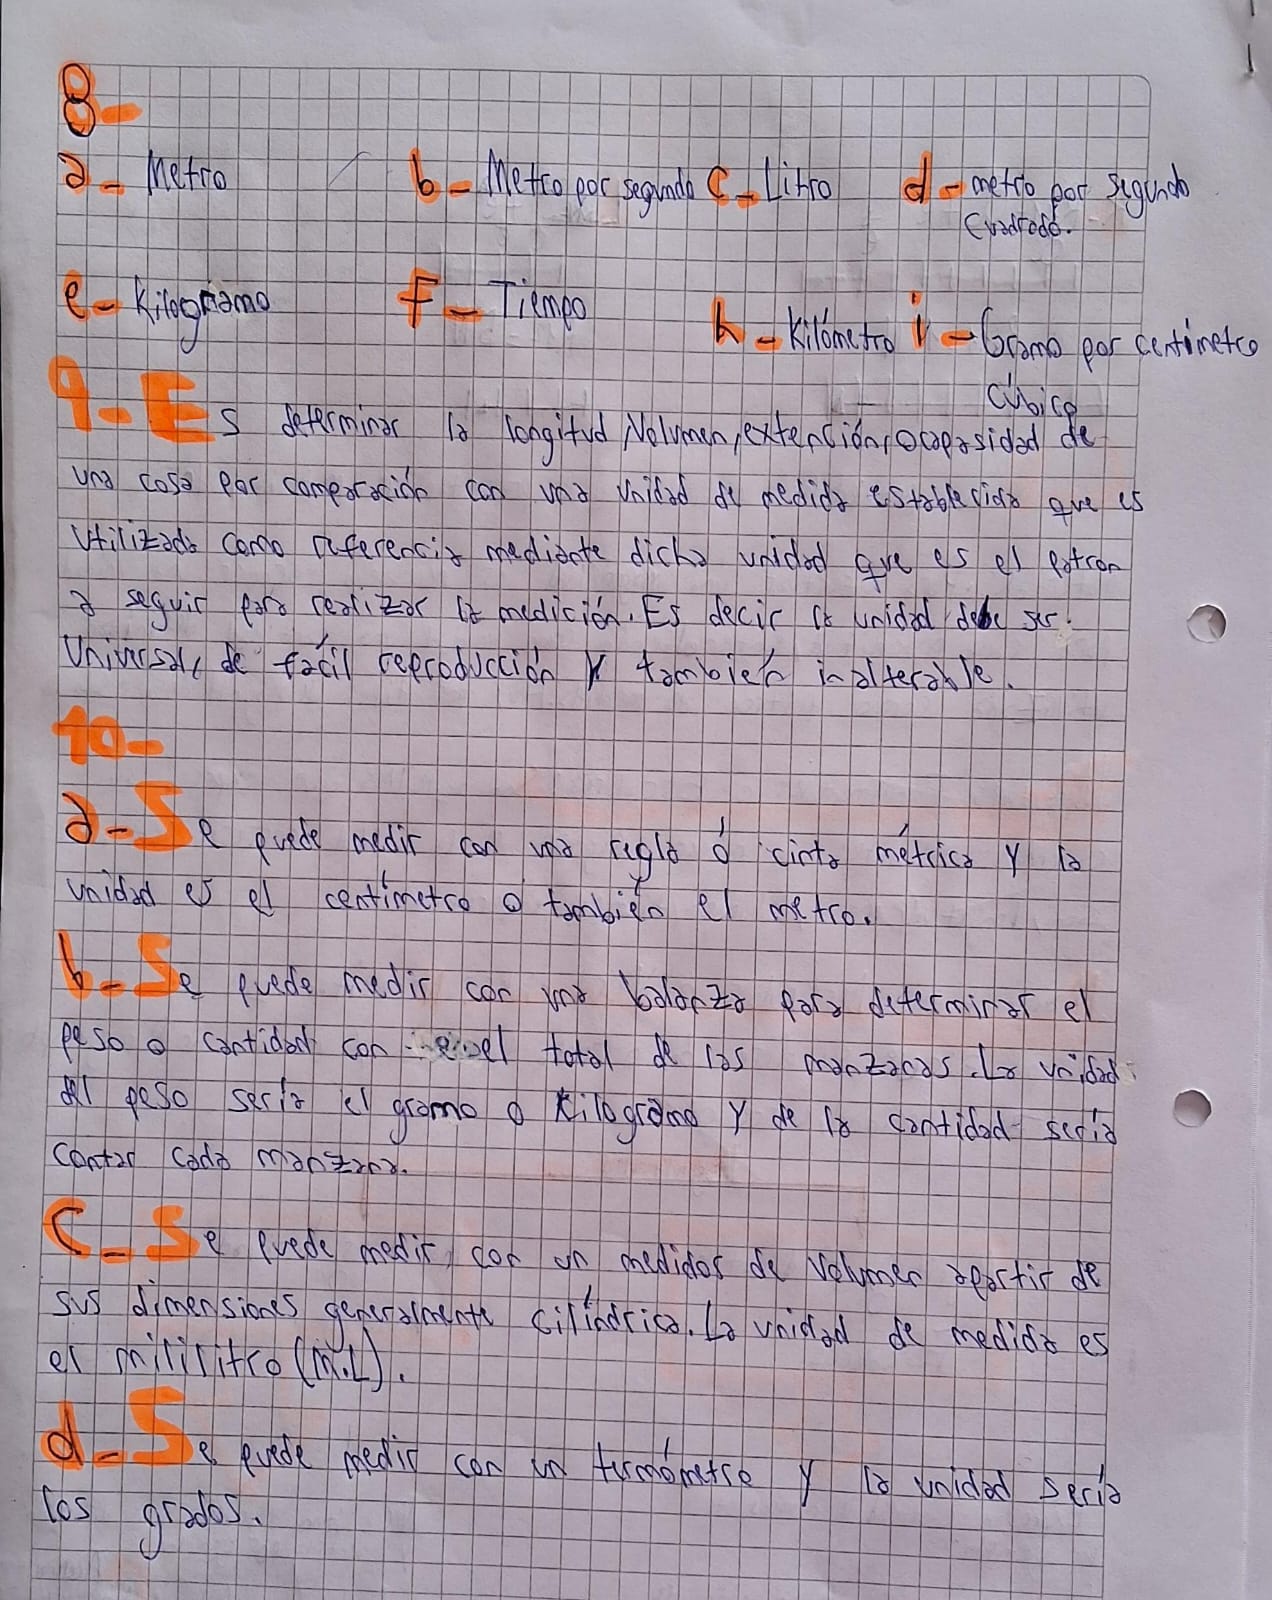 8-
a- Metro b- Metro por segundo c- Litro d- metro por segundo
cuadrado.
e- Kilogramo F- Tiempo h- Kilómetro i- Gramo por centímetro
Cúbico
9- Es determinar la longitud, Volumen, extención, o capasidad de
una cosa por comparación con una unidad de medida establecida que es
utilizada como referencia mediante dicha unidad que es el patron
a seguir para realizar la medición. Es decir la unidad debe ser:
Universal, de fácil reproducción y también inalterable.
10-
a- Se puede medir con una regla ó cinta métrica y la
unidad es el centímetro o también el metro.
b- Se puede medir con una balanza para determinar el
peso o cantidad con el total de las manzanas. La unidad
del peso sería el gramo o Kilogramo y de la cantidad sería
contar cada manzana.
C- Se puede medir, con un medidor de volumen apartir de
sus dimensiones generalmente cilíndrica. La unidad de medida es
el mililitro (m.L).
d- Se puede medir con un termómetro y la unidad sería
los grados.